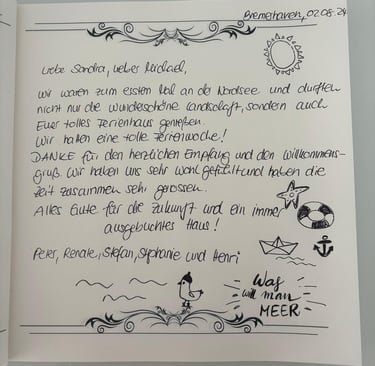 Bremerhaven, 02.08.24
Liebe Sandra, lieber Michael,
wir waren zum ersten Mal an der Nordsee und durften
nicht nur die wunderschöne Landschaft, sondern auch
Euer tolles Ferienhaus genießen.
Wir hatten eine tolle Ferienwoche!
DANKE für den herzlichen Empfang und den Willkommens-
gruß. Wir haben uns sehr wohl gefühlt und haben die
Zeit zusammen sehr genossen.
Alles Gute für die Zukunft und ein immer
ausgebuchtes Haus!
Peter, Renate, Stefan, Stephanie und Henri
Was
will man
MEER